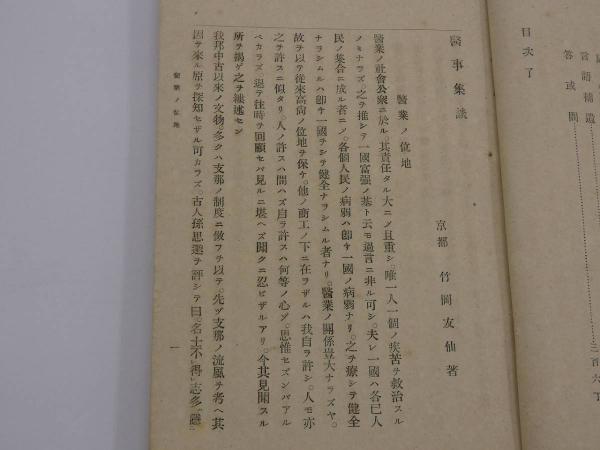 言語補遺
答或問
三百六丁
目次了
醫事集談
京都 竹岡友仙著
醫業ノ位地
醫業ノ社會公衆ニ於ル。其責任タル大ニシテ且重シ。唯一人一個ノ疾苦ヲ救治スル
ノミナラズ。之ヲ推シテ一國富强ノ基ト云モ過言ニ非ル可シ。夫レ一國ハ各已人
民ノ集合ニ成ル者ニシテ。各個人民ノ病弱ハ卽ケ一國ノ病弱ナリ。之ヲ療シテ健全
ナラシムルハ卽ケ一國ヲシテ健全ナラシムル者ナリ。醫業ノ關係豈大ナラズヤ。
故ヲ以テ從來高尙ノ位地ヲ保ケ。他ノ商工ノ下ニ在ヲザルハ我自ヲ許シ。人モ亦
之ヲ許スニ似タリ。人ノ許スハ間ハズ自ラ許スハ何等ノ心ゾ。思惟セズンバアル
ベカラズ。退テ往時ヲ回顧セバ見ルニ堪ヘズ聞クニ忍ビザルアリ。今其見聞スル
所ヲ揭ゲ之ヲ縷述セン
我邦中古以來ノ文物。多クハ支那ノ制度ニ倣フヲ以テ。先ヅ支那ノ流風ヲ考ヘ其
因テ來ル原ヲ探知セザル可カラズ。古人孫思邈ヲ評シテ曰。名士不得志多隱
醫業ノ位地
一